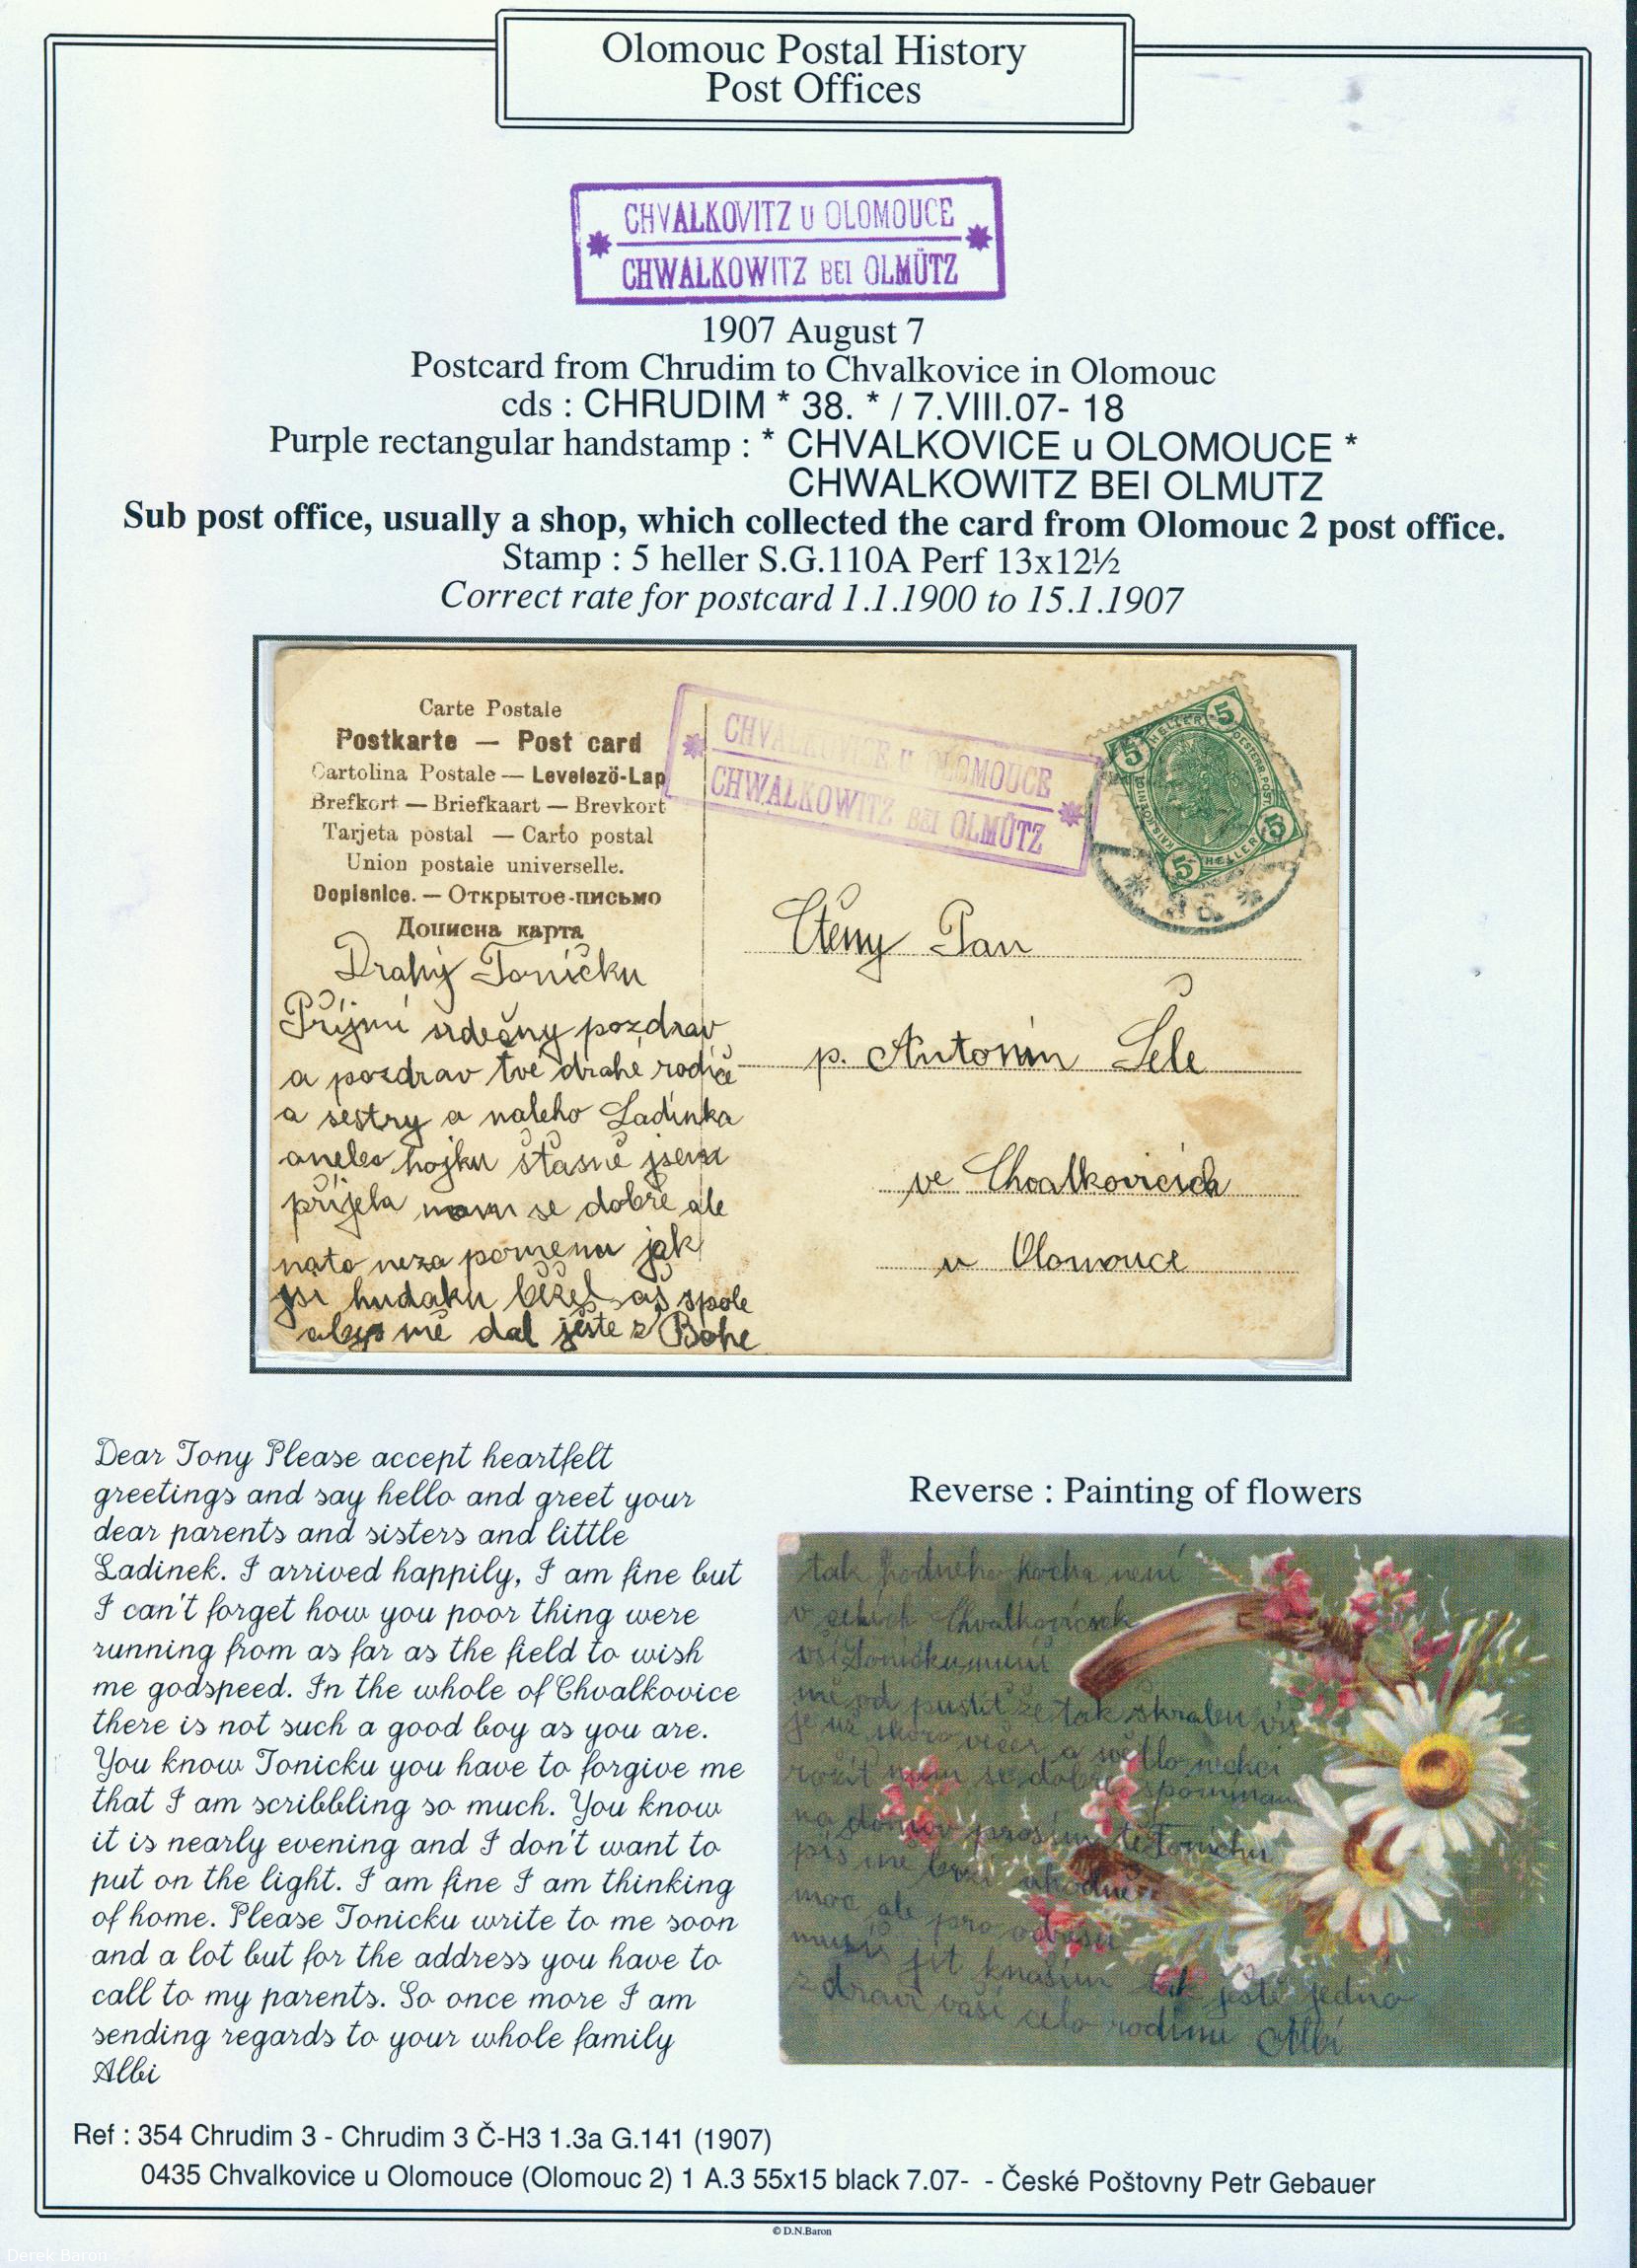 Olomouc Postal History
Post Offices
CHVALKOVITZ U OLOMOUCE
CHWALKOWITZ BEI OLMÜTZ
1907 August 7
Postcard from Chrudim to Chvalkovice in Olomouc
cds : CHRUDIM * 38. * / 7.VIII.07- 18
Purple rectangular handstamp : * CHVALKOVICE u OLOMOUCE *
CHWALKOWITZ BEI OLMUTZ
Sub post office, usually a shop, which collected the card from Olomouc 2 post office.
Stamp : 5 heller S.G.110A Perf 13x12½
Correct rate for postcard 1.1.1900 to 15.1.1907
Carte Postale
Postkarte — Post card
Cartolina Postale — Levelezö-Lap
Brefkort — Briefkaart — Brevkort
Tarjeta postal — Carto postal
Union postale universelle.
Dopisnice. — Открытое-письмо
Дописна карта
CHVALKOVICE U OLOMOUCE
CHWALKOWITZ BEI OLMÜTZ
5 HELLER 5
5 HELLER 5
Drahý Toníčku
Příjmi srdečny pozdrav
a pozdrav tvé drahé rodiče
a sestry a naleho Ladinka
anebo hojku štasně jsem
přijela mam se dobře ale
nato neza pomenu jak
jsi hudaku běžel až spole
abys mě dal ještě z Bohe
Ctěny Pan
p. Antonín Šele
ve Chvalkovicích
u Olomouce
Dear Tony Please accept heartfelt
greetings and say hello and greet your
dear parents and sisters and little
Ladinek. I arrived happily, I am fine but
I can't forget how you poor thing were
running from as far as the field to wish
me godspeed. In the whole of Chvalkovice
there is not such a good boy as you are.
You know Tonicku you have to forgive me
that I am scribbling so much. You know
it is nearly evening and I don't want to
put on the light. I am fine I am thinking
of home. Please Tonicku write to me soon
and a lot but for the address you have to
call to my parents. So once more I am
sending regards to your whole family
Albi
Reverse : Painting of flowers
tak hodneho hocha není
v celích Chvalkovicích
víš Toníčku musíš
mě od pustit že tak skrabu víš
je už skoro večer a světlo nekci
rožit mám se dobře spomínam
na domov prosím tě Toníčku
piš mě brzi a hodně
moc ale pro adresu
musíš jít knašim tak ještě jedno
zdraví vaši celo rodinu Albi
Ref : 354 Chrudim 3 - Chrudim 3 Č-H3 1.3a G.141 (1907)
0435 Chvalkovice u Olomouce (Olomouc 2) 1 A.3 55x15 black 7.07- - České Poštovny Petr Gebauer
© D.N.Baron
Derek Baron